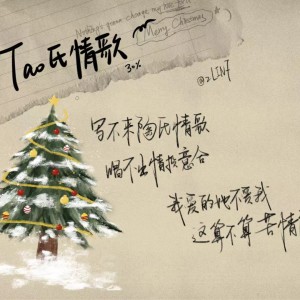 Nothing's gonna change my love for u
Merry Christmas
Tao氏情歌
30x
@2LIN7
写不来陶氏情歌
唱不出情投意合
我爱的他不爱我
这算不算苦情